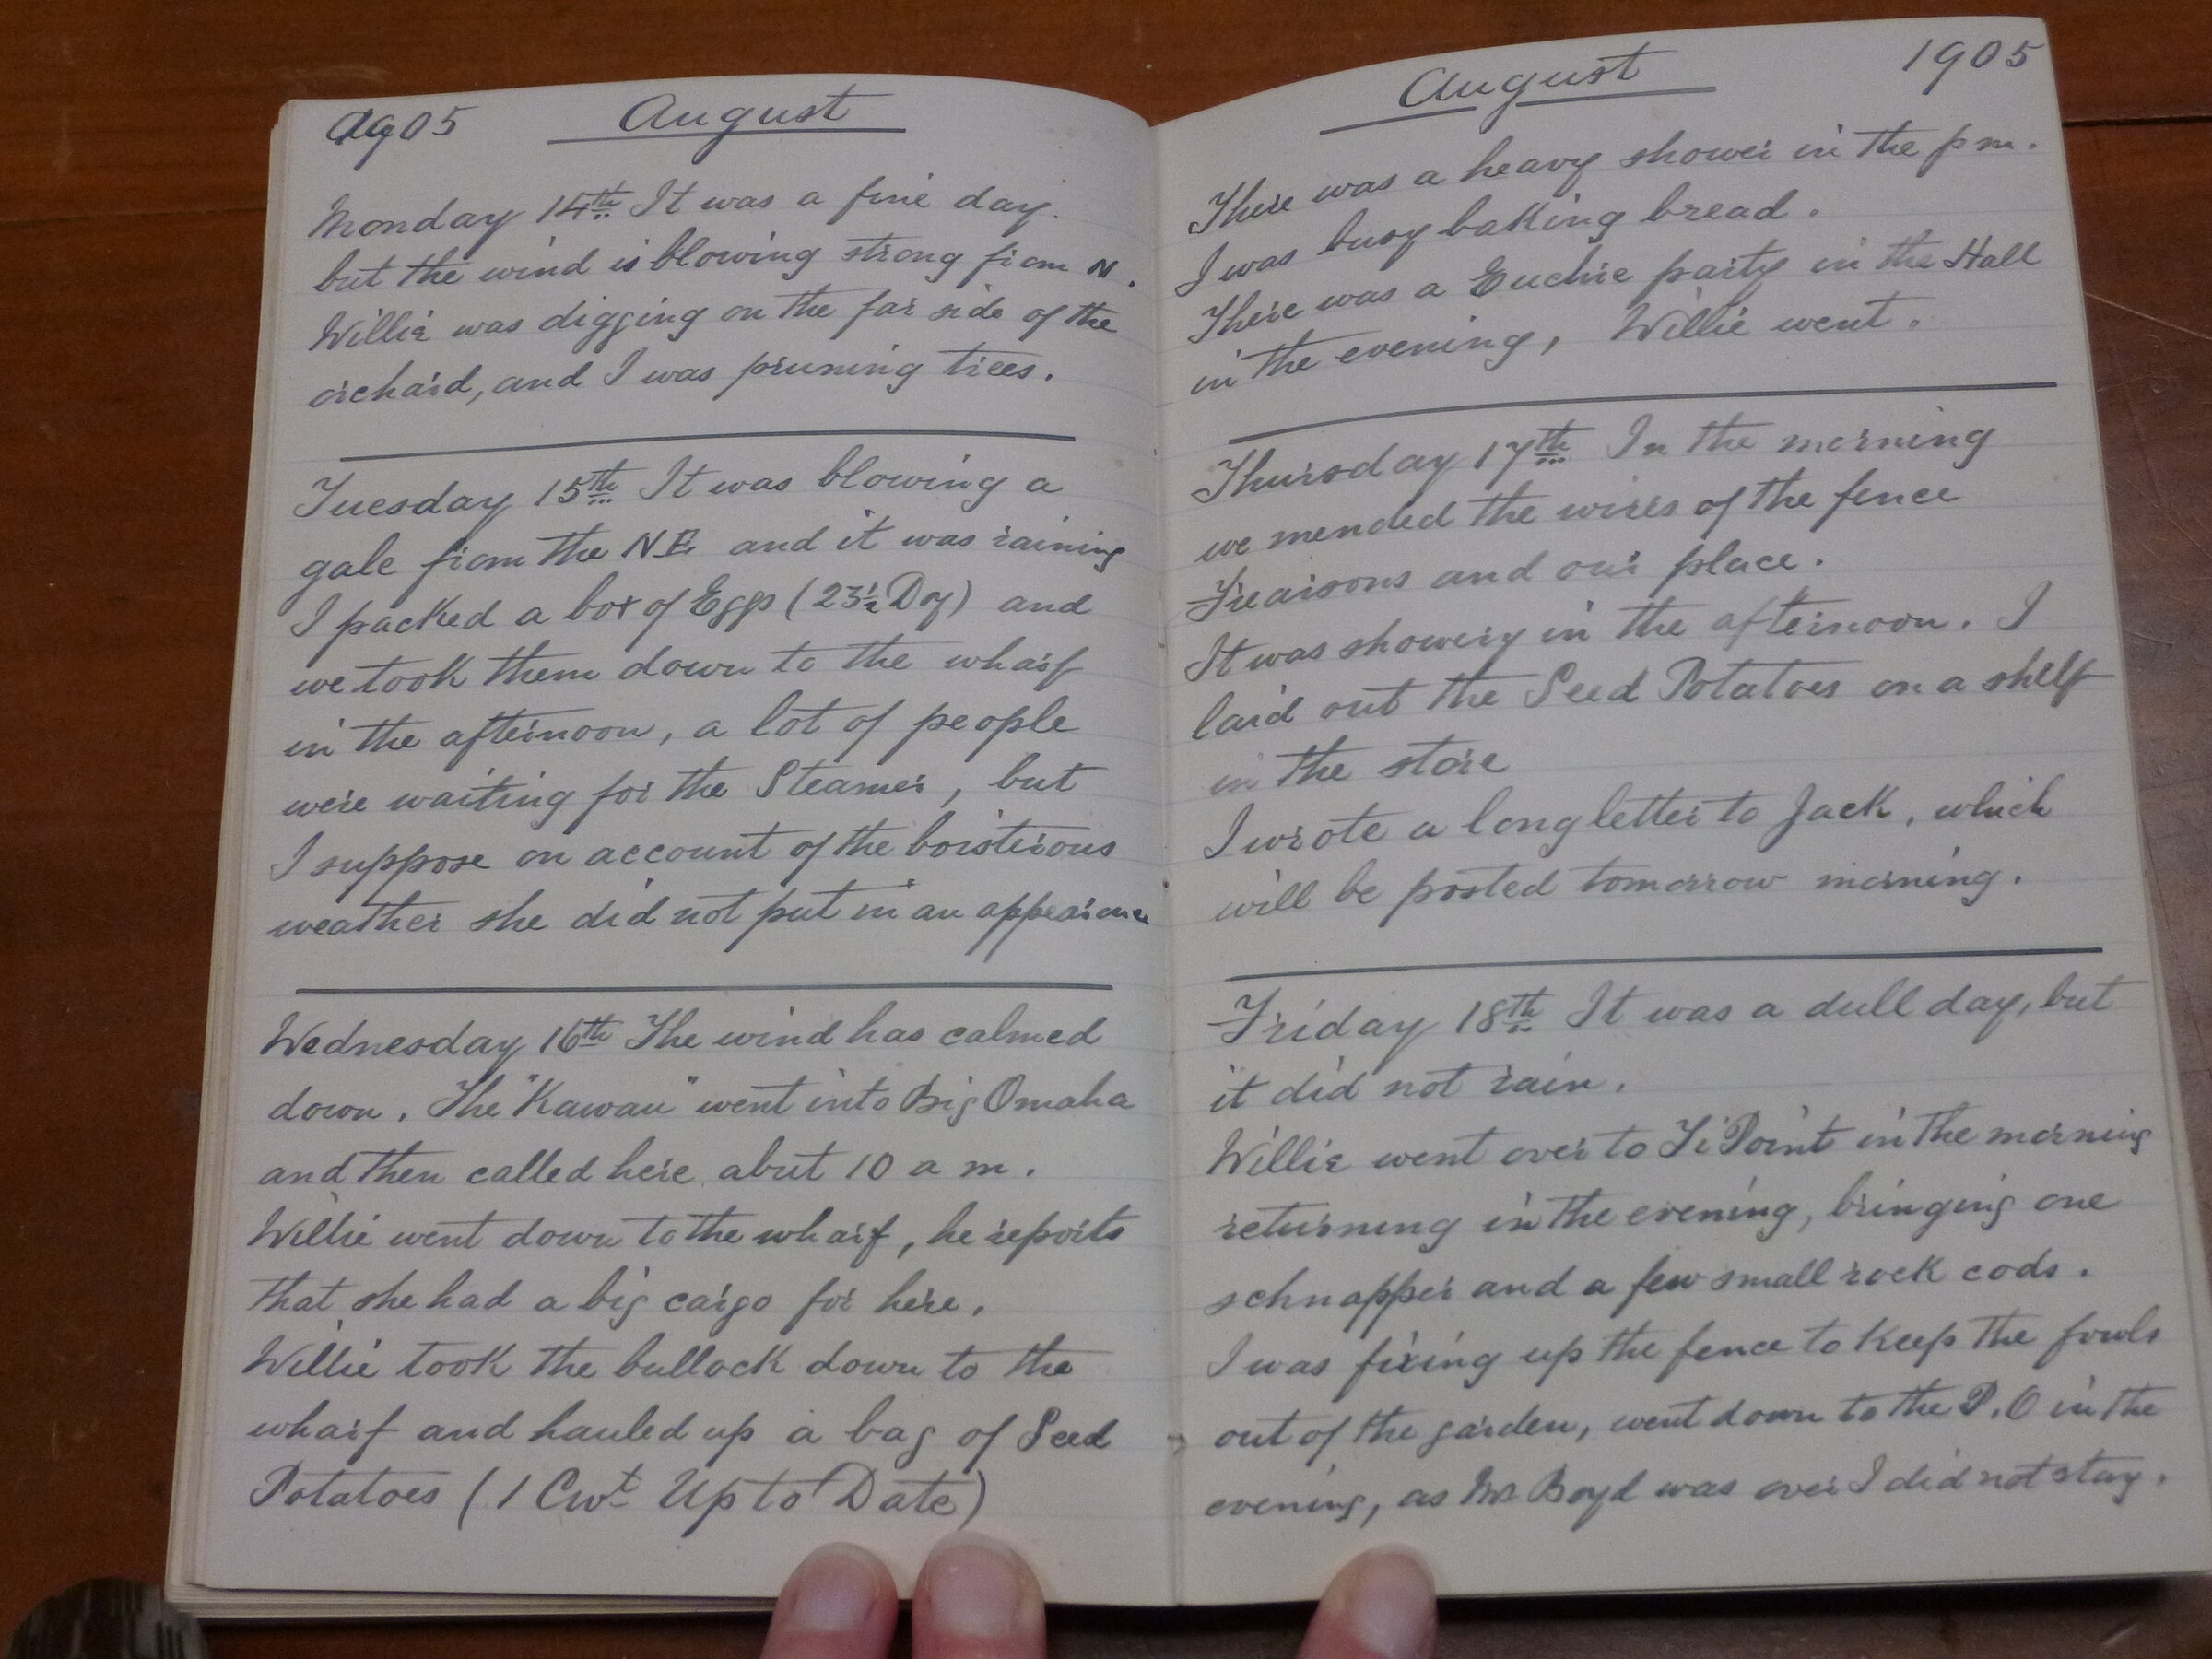 1905 August
Monday 14th It was a fine day.
but the wind is blowing strong from N.
Willie was digging on the far side of the
orchard, and I was pruning trees.
Tuesday 15th It was blowing a
gale from the NE and it was raining
I packed a box of Eggs (23½ Doz) and
we took them down to the wharf
in the afternoon, a lot of people
were waiting for the Steamer, but
I suppose on account of the boisterous
weather she did not put in an appearance
Wednesday 16th The wind has calmed
down. The "Kawau" went into Big Omaha
and then called here abut 10 a m.
Willie went down to the wharf, he reports
that she had a big cargo for here.
Willie took the bullock down to the
wharf and hauled up a bag of Seed
Potatoes (1 Cwt Up to Date)
August 1905
There was a heavy shower in the p m.
I was busy baking bread.
There was a Euchre party in the Hall
in the evening, Willie went.
Thursday 17th In the morning
we mended the wires of the fence
Greaisons and our place.
It was showery in the afternoon. I
laid out the Seed Potatoes on a shelf
in the store
I wrote a long letter to Jack, which
will be posted tomorrow morning.
Friday 18th It was a dull day, but
it did not rain.
Willie went over to Ti Point in the morning
returning in the evening, bringing one
schnapper and a few small rock cods.
I was fixing up the fence to keep the fowls
out of the garden, went down to the P.O in the
evening, as Mr Boyd was over I did not stay.